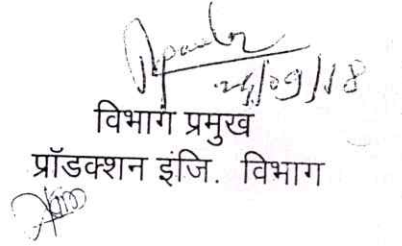 24/09/18
विभाग प्रमुख
प्रॉडक्शन इंजि. विभाग